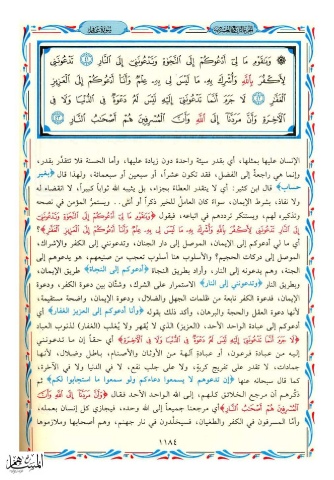 سورة غافر
۞ وَيَٰقَوْمِ مَا لِيٓ أَدْعُوكُمْ إِلَى ٱلنَّجَوٰةِ وَتَدْعُونَنِيٓ إِلَى ٱلنَّارِ ٤١ تَدْعُونَنِي
لِأَكْفُرَ بِٱللَّهِ وَأُشْرِكَ بِهِۦ مَا لَيْسَ لِي بِهِۦ عِلْمٌ وَأَنَا۠ أَدْعُوكُمْ إِلَى ٱلْعَزِيزِ
ٱلْغَفَّٰرِ ٤٢ لَا جَرَمَ أَنَّمَا تَدْعُونَنِيٓ إِلَيْهِ لَيْسَ لَهُۥ دَعْوَةٌ فِي ٱلدُّنْيَا وَلَا فِي
ٱلْءَاخِرَةِ وَأَنَّ مَرَدَّنَآ إِلَى ٱللَّهِ وَأَنَّ ٱلْمُسْرِفِينَ هُمْ أَصْحَٰبُ ٱلنَّارِ ٤٣
الإنسان عليها بمثلها، أي بقدر سيئة واحدة دون زيادة عليها، وأما الحسنة فلا تتقدَّر بقدر،
وإنما هي راجعة إلى الفضل، فقد تكون عشراً، أو سبعين أو سبعمائة، ولهذا قال ﴿بغير
حساب﴾ قال ابن كثير: أي لا يتقدر العطاء بجزاء، بل يثيبه الله ثواباً كبيراً، لا انقضاء له
ولا نفاد، بشرط الإيمان، سواءً كان العاملُ للخير ذكراً أو أنثى.. ويستمرُّ المؤمن في نصحه
وتذكيره لهم، ويستنكر ترددهم في اتباعه، فيقول ﴿ويا قوم ما لي أدعوكم إلى النجاة وتدعونني
إلى النار تدعونني لأكفر بالله وأشرك به ما ليس لي به علم وأنا أدعوكم إلى العزيز الغفار﴾؟
أي ما لي أدعوكم إلى الإيمان، الموصل إلى دار الجنان، وتدعونني إلى الكفر والإشراك،
الموصل إلى دركات الجحيم؟ والأسلوب هنا أسلوب تعجب من صنيعهم، هو يدعوهم إلى
الجنة، وهم يدعونه إلى النار، وأراد بطريق النجاة ﴿أدعوكم إلى النجاة﴾ طريق الإيمان،
وبطريق النار ﴿وتدعونني إلى النار﴾ الاستمرار على الشرك، وشتَّان بين دعوة الكفر، ودعوة
الإيمان، فدعوة الكفر نابعة من ظلمات الجهل والضلال، ودعوة الإيمان، واضحة مستقيمة،
لأنها دعوة العقل والحجة والبرهان، وأكد ذلك بقوله ﴿وأنا أدعوكم إلى العزيز الغفار﴾ أي
أدعوكم إلى عبادة الواحد الأحد، (العزيز) الذي لا يُقهر ولا يُغلب (الغفار) لذنوب العباد
﴿لا جرم أنما تدعونني إليه ليس له دعوة في الدنيا ولا في الآخرة﴾ أي حقاً إن ما تدعونني
إليه من عبادة فرعون، أو عبادة آلهة من الأوثان والأصنام، باطل وضلال، لأنها
جمادات، لا تقدر على تفريج كربةٍ، ولا على جلب نفع، لا في الدنيا ولا في الآخرة،
كما قال سبحانه عنها ﴿إن تدعوهم لا يسمعوا دعاءكم ولو سمعوا ما استجابوا لكم﴾ ثم
ذكَّرهم أن مرجع الخلائق كلهم، إلى الله الواحد الأحد فقال ﴿وأن مردنا إلى الله وأن
المسرفين هم أصحاب النار﴾ أي مرجعنا جميعاً إلى الله وحده، فيجازي كل إنسان بعمله،
وأمَّا المسرفون في الكفر والطغيان، فسيخلَّدون في نار جهنم، وهم أصحابها وملازموها
١١٨٤